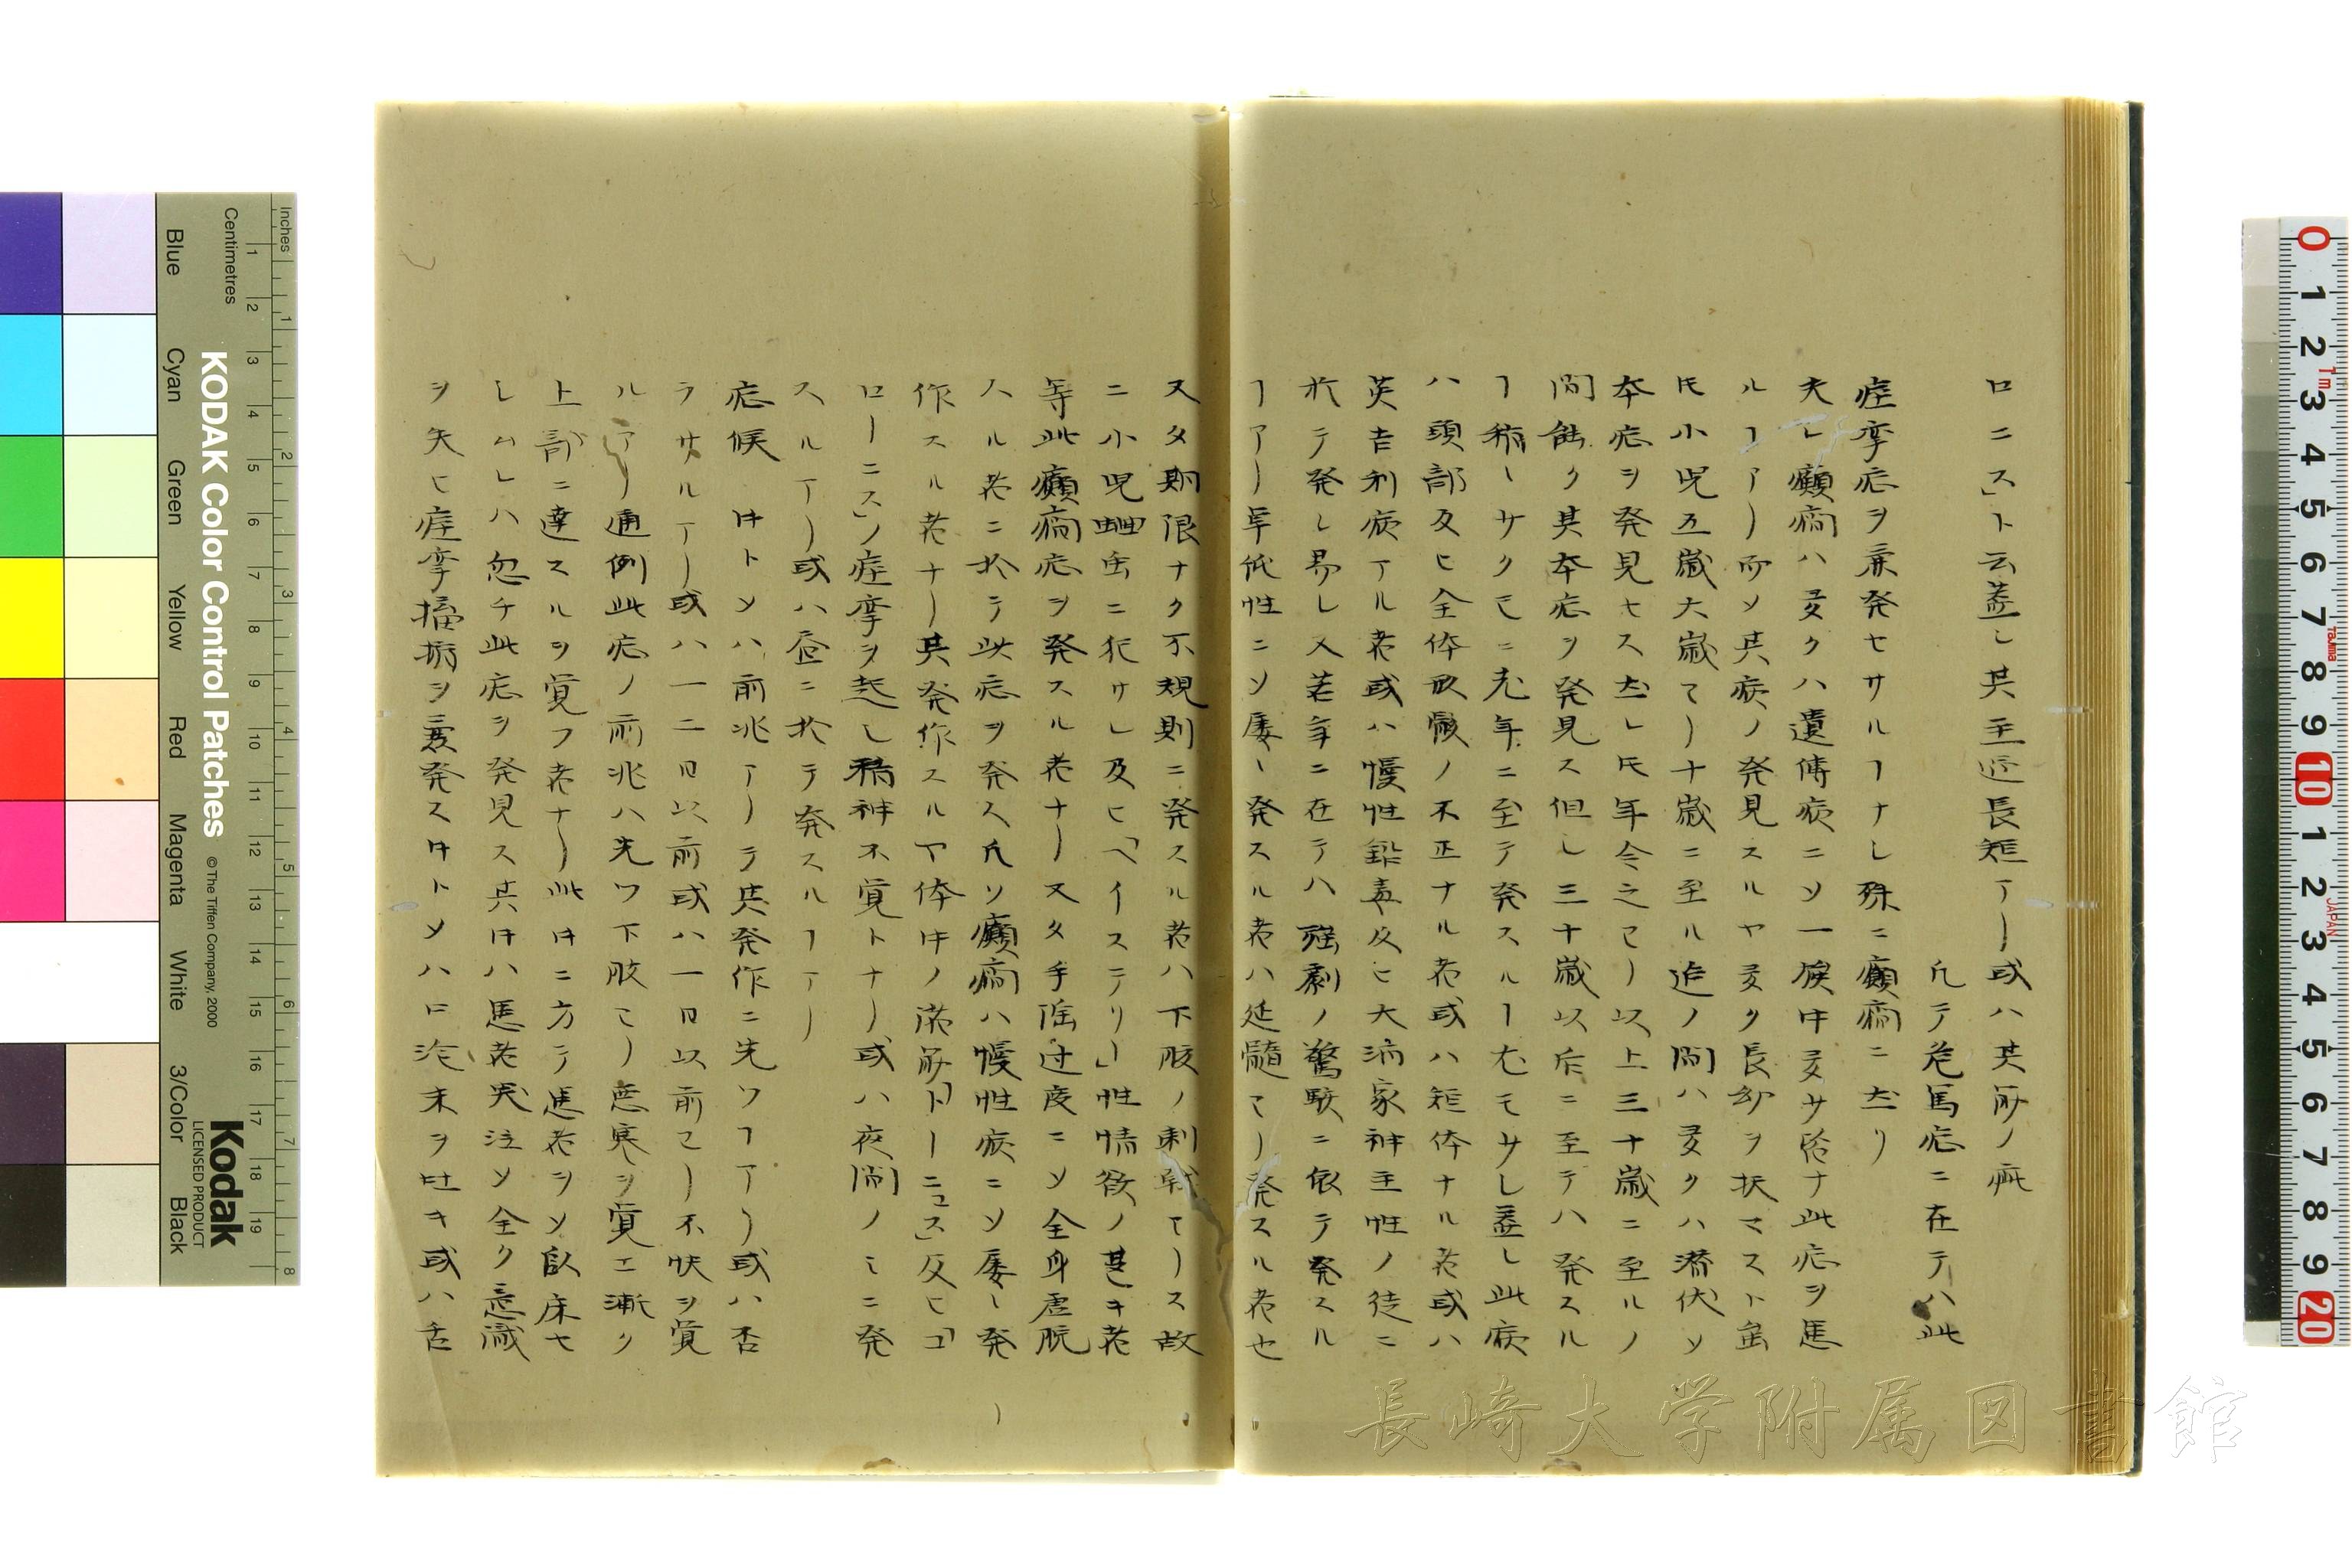 ロニス」ト云蓋シ其主延長短アリ或ハ其所ノ病
凡テ危篤症ニ在テハ此
痙挛症ヲ兼発セサルヿナシ殊ニ癲癇ニ在リ
夫レ癲癇ハ多クハ遺傳病ニソ一族中多サ皆ナ此症ヲ患
ルヿアリ而ソ其病ノ発見スルヤ多ク長幼ヲ扶マスト虽
氏小児五歳六歳ヨリ十歳ニ至ル迠ノ間ハ多クハ潜伏ソ
本症ヲ発見セス然レ氏年令之ヨリ以上三十歳ニ至ルノ
間能ク其本症ヲ発見ス但シ三十歳以后ニ至テハ発スル
ヿ稀レサクモニ老年ニ至テ発スルヿ尤モサシ蓋シ此病
ハ頭部及ヒ全体排骰ノ不正ナル者或ハ短体ナル者或ハ
英吉利病アル者或ハ慢性鉛毒及ヒ大滴家神主性ノ徒ニ
於テ発シ易シ又若年ニ在テハ強劇ノ驚駭ニ依テ発スル
ヿアリ卑低性ニソ屡々発スル者ハ延髄ヨリ発スル者也
又タ期限ナク不規則ニ発スル者ハ下肢ノ刺戟ヨリス故
ニ小児蛔虫ニ犯サレ及ヒ「ヘイステリ」性情欲ノ甚キ者
等此癲癇症ヲ発スル者ナリ又タ手淫过度ニソ全身虚脱
スル者ニ於テ此症ヲ発ス凡ソ癲癇ハ慢性病ニソ屡々発
作スル者ナリ其発作スルヤ体中ノ諸筋「トーニュス」及ヒ「コ
ローニス」ノ痙挛ヲ起シ精神不覚トナリ或ハ夜間ノミニ発
スルアリ或ハ昼ニ於テ発スルヿアリ
症候 时トソハ前兆アリテ其発作ニ先ツヿアリ或ハ否
ラサルアリ或ハ一二日以前或ハ一日以前ヨリ不快ヲ覚
ルアリ通例此症ノ前兆ハ先ツ下肢ヨリ悪寒ヲ覚エ漸ク
上部ニ達スルヲ覚フ者ナリ此时ニ方テ患者ヲソ臥床セ
シムレハ忽チ此症ヲ発見ス其时ハ患者哭泣ソ全ク意識
ヲ失ヒ痙挛搐搦ヲ褰発ス时トソハ口泡末ヲ吐キ或ハ舌
長崎大学附属図書館
KODAK Color Control Patches
© The Tiffen Company, 2000
Kodak
LICENSED PRODUCT
Inches
Centimetres
Blue
Cyan
Green
Yellow
Red
Magenta
White
3/Color
Black